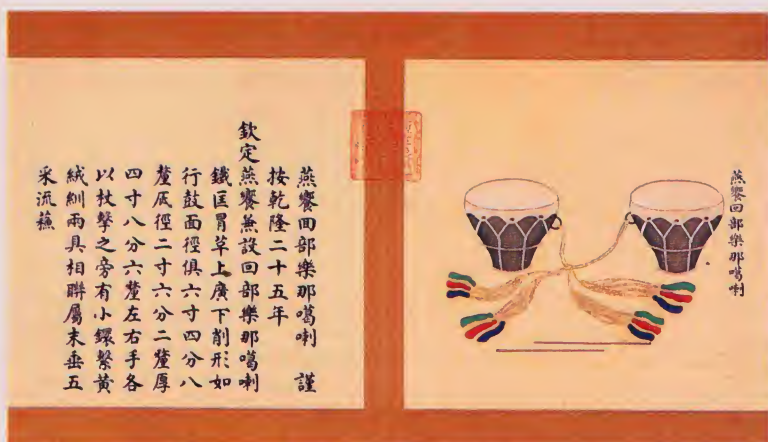 燕饗回部樂那噶喇
燕饗回部樂那噶喇 謹
按乾隆二十五年
欽定燕饗兼設回部樂那噶喇
鐵匡冒革上廣下削形如
行鼓面徑俱六寸四分八
釐底徑二寸六分二釐厚
四寸八分六釐左右手各
以杖擊之旁有小鐶繫黃
絨紃兩具相聯屬末垂五
采流蘇